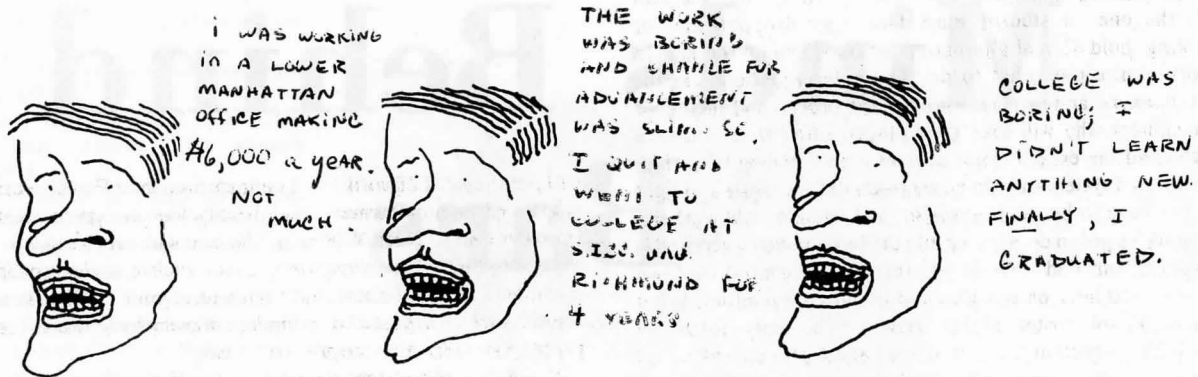 i WAS WORKING
in A LOWER
MANHATTAN
OFFICE MAKING
$6,000 a year
NOT
MUCH.
THE WORK
WAS BORING
AND CHANCE FOR
ADVANCEMENT
WAS SLIM. SO
I QUIT AND
WENT TO
COLLEGE AT
RICHMOND FOR
4 YEARS
COLLEGE WAS
BORING; I
DIDN'T LEARN
ANYTHING NEW.
FINALLY, I
GRADUATED.